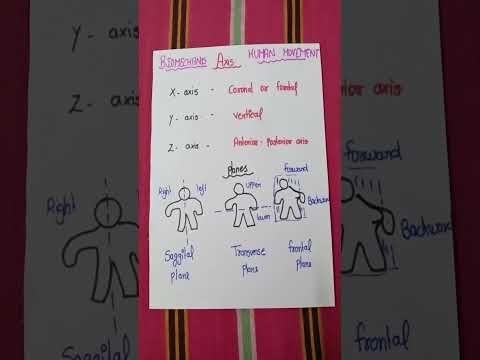 BIOMECHANIS Axis HUMAN MOVEMENT
X-axis - Coronal or frontal
Y-axis - vertical
Z-axis - Anterior-Posterior axis
Planes
Right left
upper
lower
forward
Backward
Saggital plane
Transverse plane
frontal plane
Y- axis
Z- axis
Right
Saggital
forward
Backwar
frontal